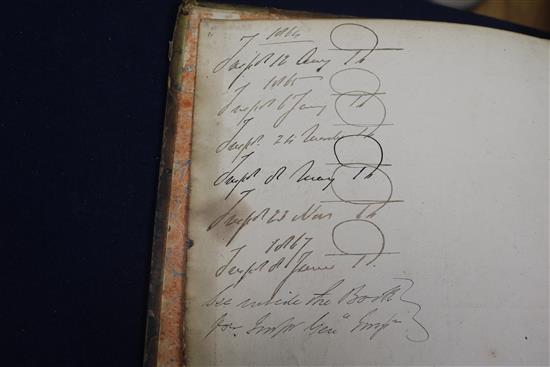 1864
Inspd 12 Aug Th
1865
Inspd 6 Jany Th
Inspd. 24 March Th
Inspd 8 May Th
Inspd 23 Nov Th
1867
Inspd 8 June Th.
see inside the Book
for Inspr Genl Inspn